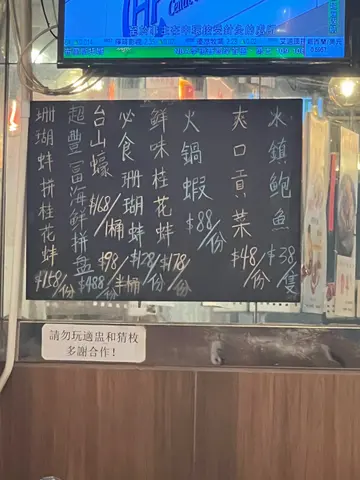 冰鎮鮑魚 $38/隻
爽口貢菜 $48/份
火鍋蝦 $88/份
鮮味桂花蚌 $178/份
必食珊瑚蚌 $128/份
台山蠔 $168/桶 $98/半桶
超豐富海鮮拼盘 $488/份
珊瑚蚌拼桂花蚌 $158/份
請勿玩適盅和猜枚
多謝合作!